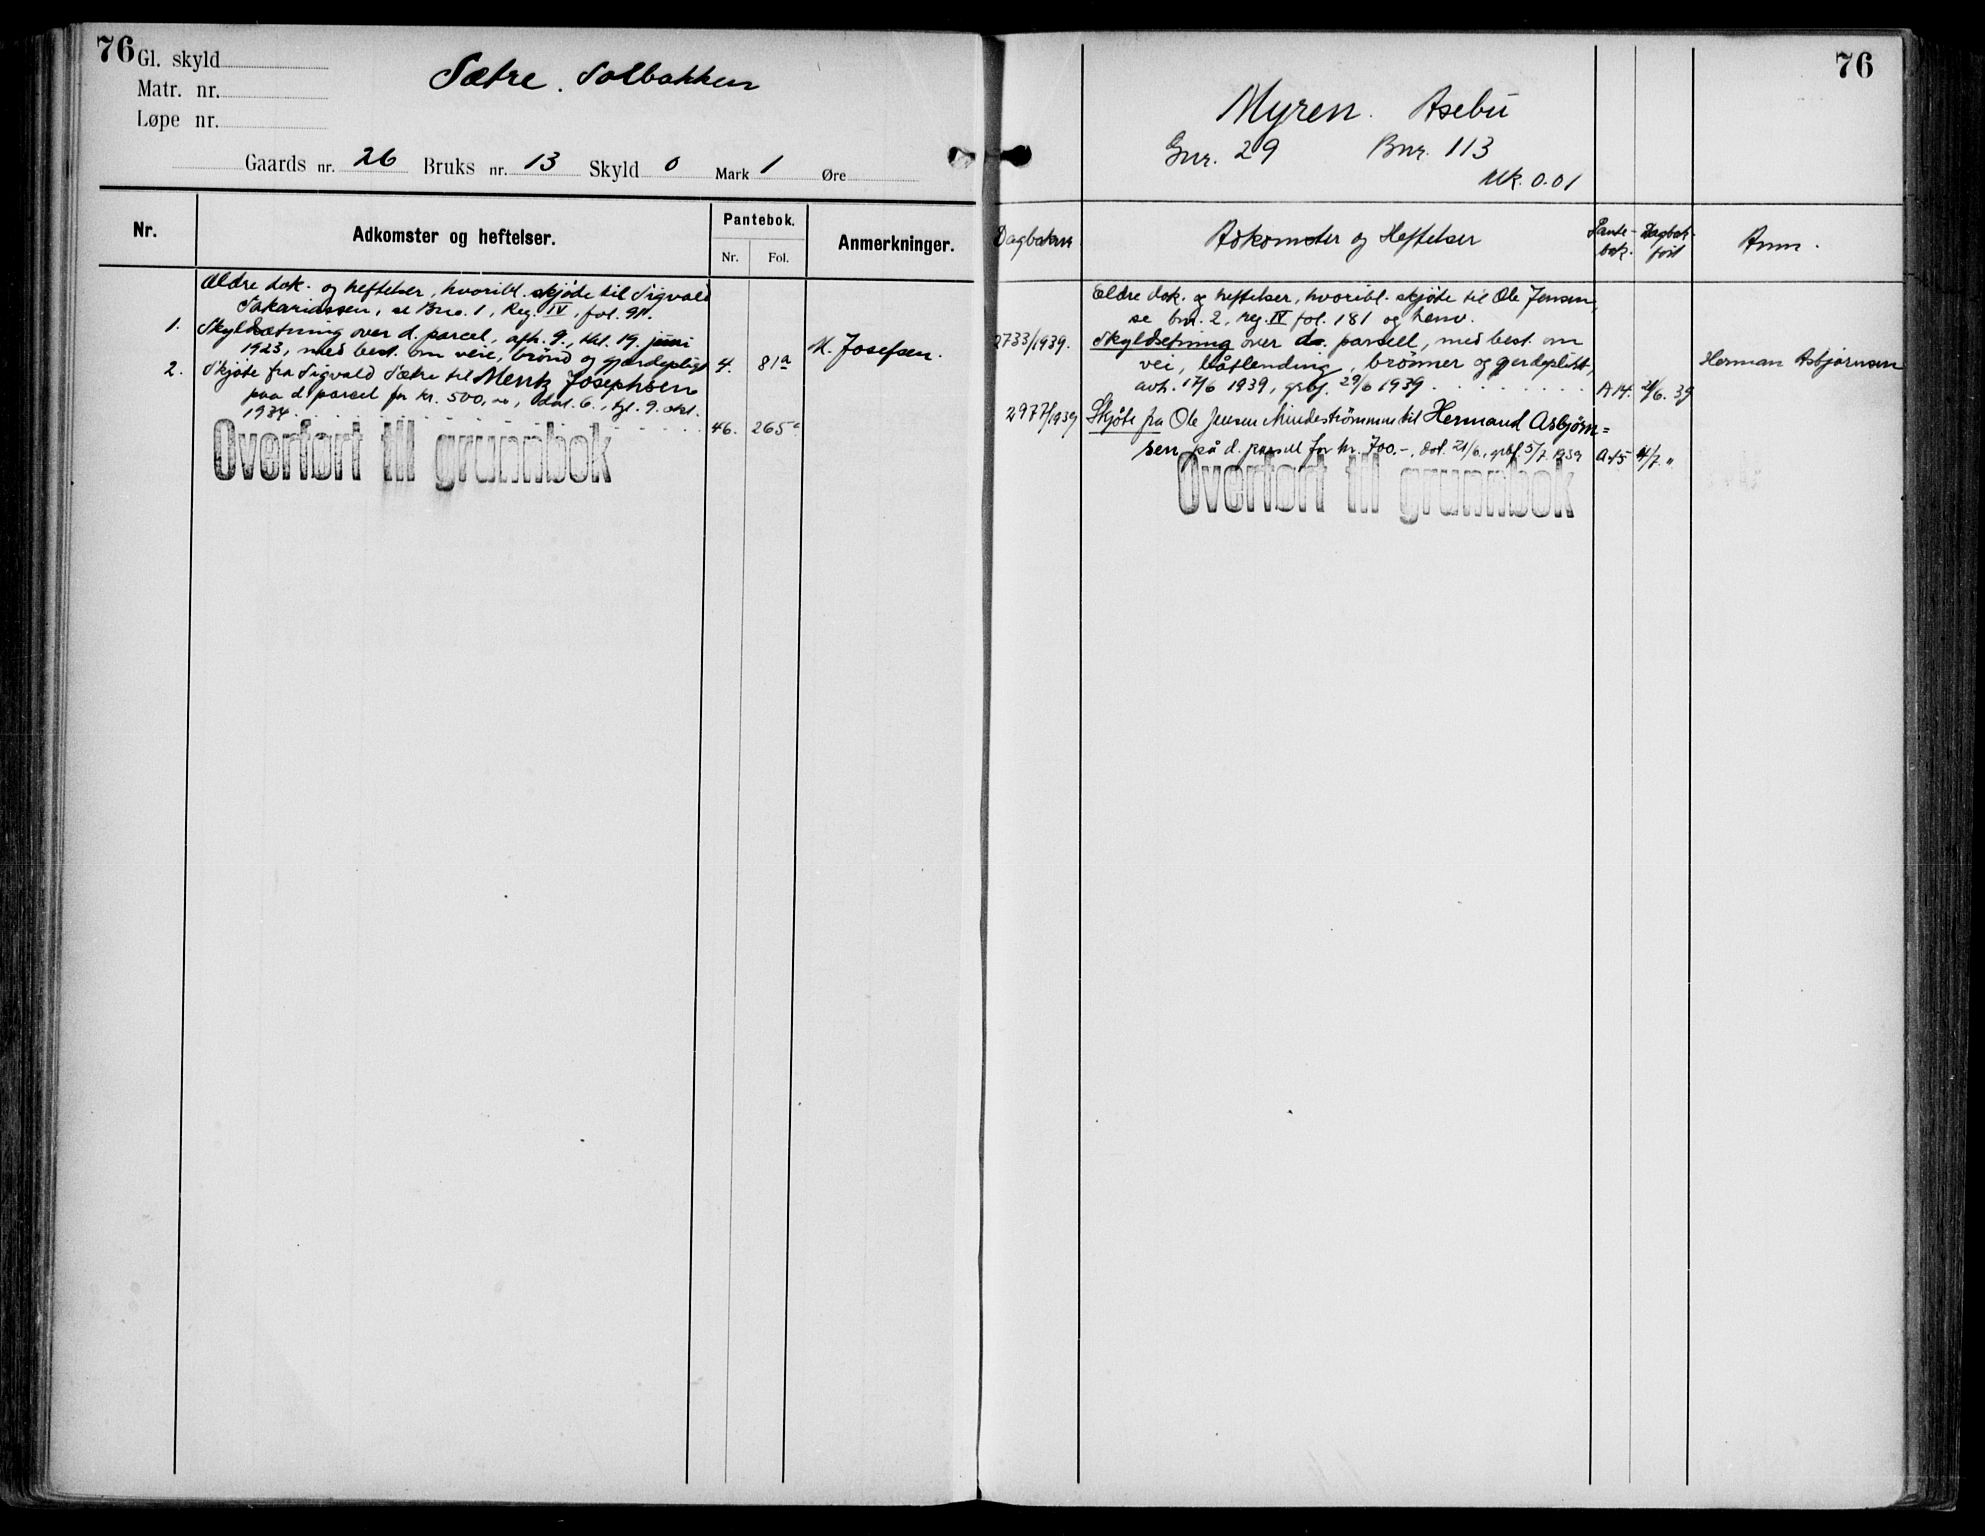 76
Gl. skyld
Matr. nr.
Løpe nr.
Sætre. Solbakken
Gaards nr. 26 Bruks nr. 13 Skyld 0 Mark 1 Øre
Nr.
Adkomster og heftelser.
Pantebok.
Nr. Fol.
Anmerkninger.
Ældre dok. og heftelser, hvoribl. skjøte til Sigvald
Sakariassen, se Bno. 1, Reg. IV, fol. 911.
1. Skyldsætning over d. parcel, afh. 9., thl. 19. juni
1923, med best. om veie, brønd og gjærdepligt 4. 81a M. Josefsen.
2. Skjøte fra Sigvald Sætre til Mentz Josephsen
paa d. parcel for kr. 500,00, dat. 6., tgl. 9. okt.
1934 46. 265
Overført til grunnbok
76
Myren. Asebu
Gnr. 29 Bnr. 113
Mk. 0.01
Dagboknr
Adkomster og Heftelser
Pante-
bok.
Dagbok-
ført
Anm.
Eldre dok. og heftelser, hvoribl. skjøte til Ole Jensen,
se bnr. 2, reg. IV fol. 181 og henv.
2733/1939. Skyldsetning over do. parsell, med best. om
vei, båtlending, brønner og gerdeplikt,
avh. 17/6 1939, grbf. 29/6 1939 A 14. 21/6. 39
Herman Asbjørnsen
2977/1939 Skjøte fra Ole Jensen Mindestrømmen til Hermand Asbjørn=
sen på d. parsell for kr. 700.-, dat. 21/6., grbf. 5/7 1939 A 15 4/7. "
Overført til grunnbok